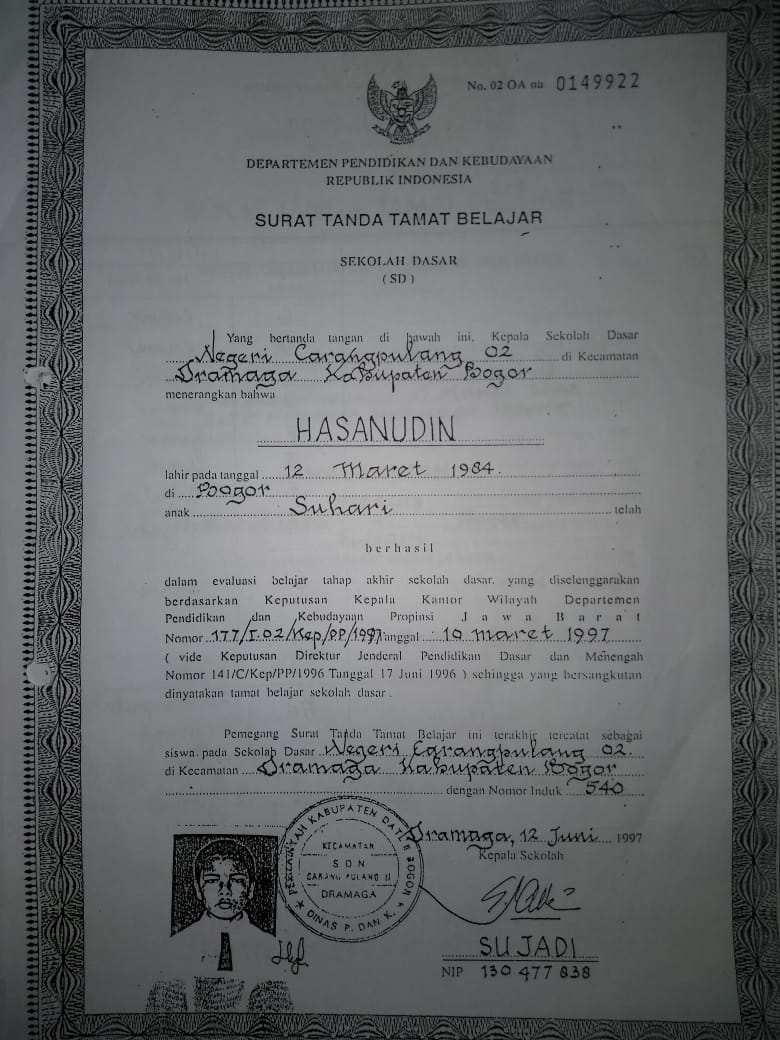 No. 02 OA oa 0149922
DEPARTEMEN PENDIDIKAN DAN KEBUDAYAAN
REPUBLIK INDONESIA
SURAT TANDA TAMAT BELAJAR
SEKOLAH DASAR
( SD )
Yang bertanda tangan di bawah ini, Kepala Sekolah Dasar
Negeri Carangpulang 02 di Kecamatan
Dramaga Kabupaten Bogor
menerangkan bahwa
HASANUDIN
lahir pada tanggal 12 Maret 1984.
di Bogor
anak Suhari telah
berhasil
dalam evaluasi belajar tahap akhir sekolah dasar, yang diselenggarakan
berdasarkan Keputusan Kepala Kantor Wilayah Departemen
Pendidikan dan Kebudayaan Propinsi Jawa Barat
Nomor 177/I.02/Kep/PP/1997 Tanggal : 10 maret 1997
( vide Keputusan Direktur Jenderal Pendidikan Dasar dan Menengah
Nomor 141/C/Kep/PP/1996 Tanggal 17 Juni 1996 ) sehingga yang bersangkutan
dinyatakan tamat belajar sekolah dasar.
Pemegang Surat Tanda Tamat Belajar ini terakhir tercatat sebagai
siswa, pada Sekolah Dasar Negeri Carangpulang 02.
di Kecamatan Dramaga Kabupaten Bogor
dengan Nomor Induk 540
Dramaga, 12 Juni 1997
Kepala Sekolah
PEMERINTAH KABUPATEN DATI II BOGOR
KECAMATAN
SDN
CARANG PULANG II
DRAMAGA
DINAS P. DAN K.
SUJADI
NIP 130 477 838